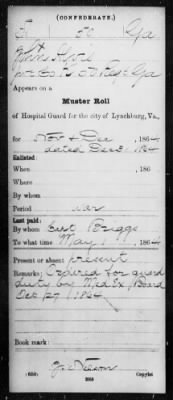 (CONFEDERATE.)
50 Ga
Appears on a
Muster Roll
of Hospital Guard for the city of Lynchburg, Va.,
for Nov & Dec , 1864
dated Dec 1864
Enlisted:
When , 186
Where
By whom
Period war
Last paid:
By whom Capt Briggs
To what time May 1 , 1864
Present or absent present
Remarks: Ordered for guard
duty by Med Ex Board
Oct 27 1864
Book mark: